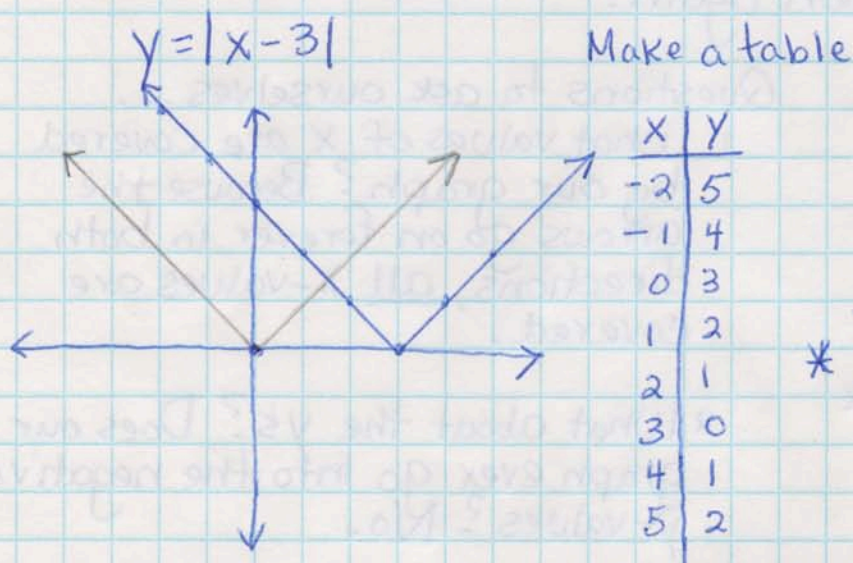 y = |x - 3|
Make a table
X | Y
-2 | 5
-1 | 4
0 | 3
1 | 2
2 | 1
3 | 0
4 | 1
5 | 2
*